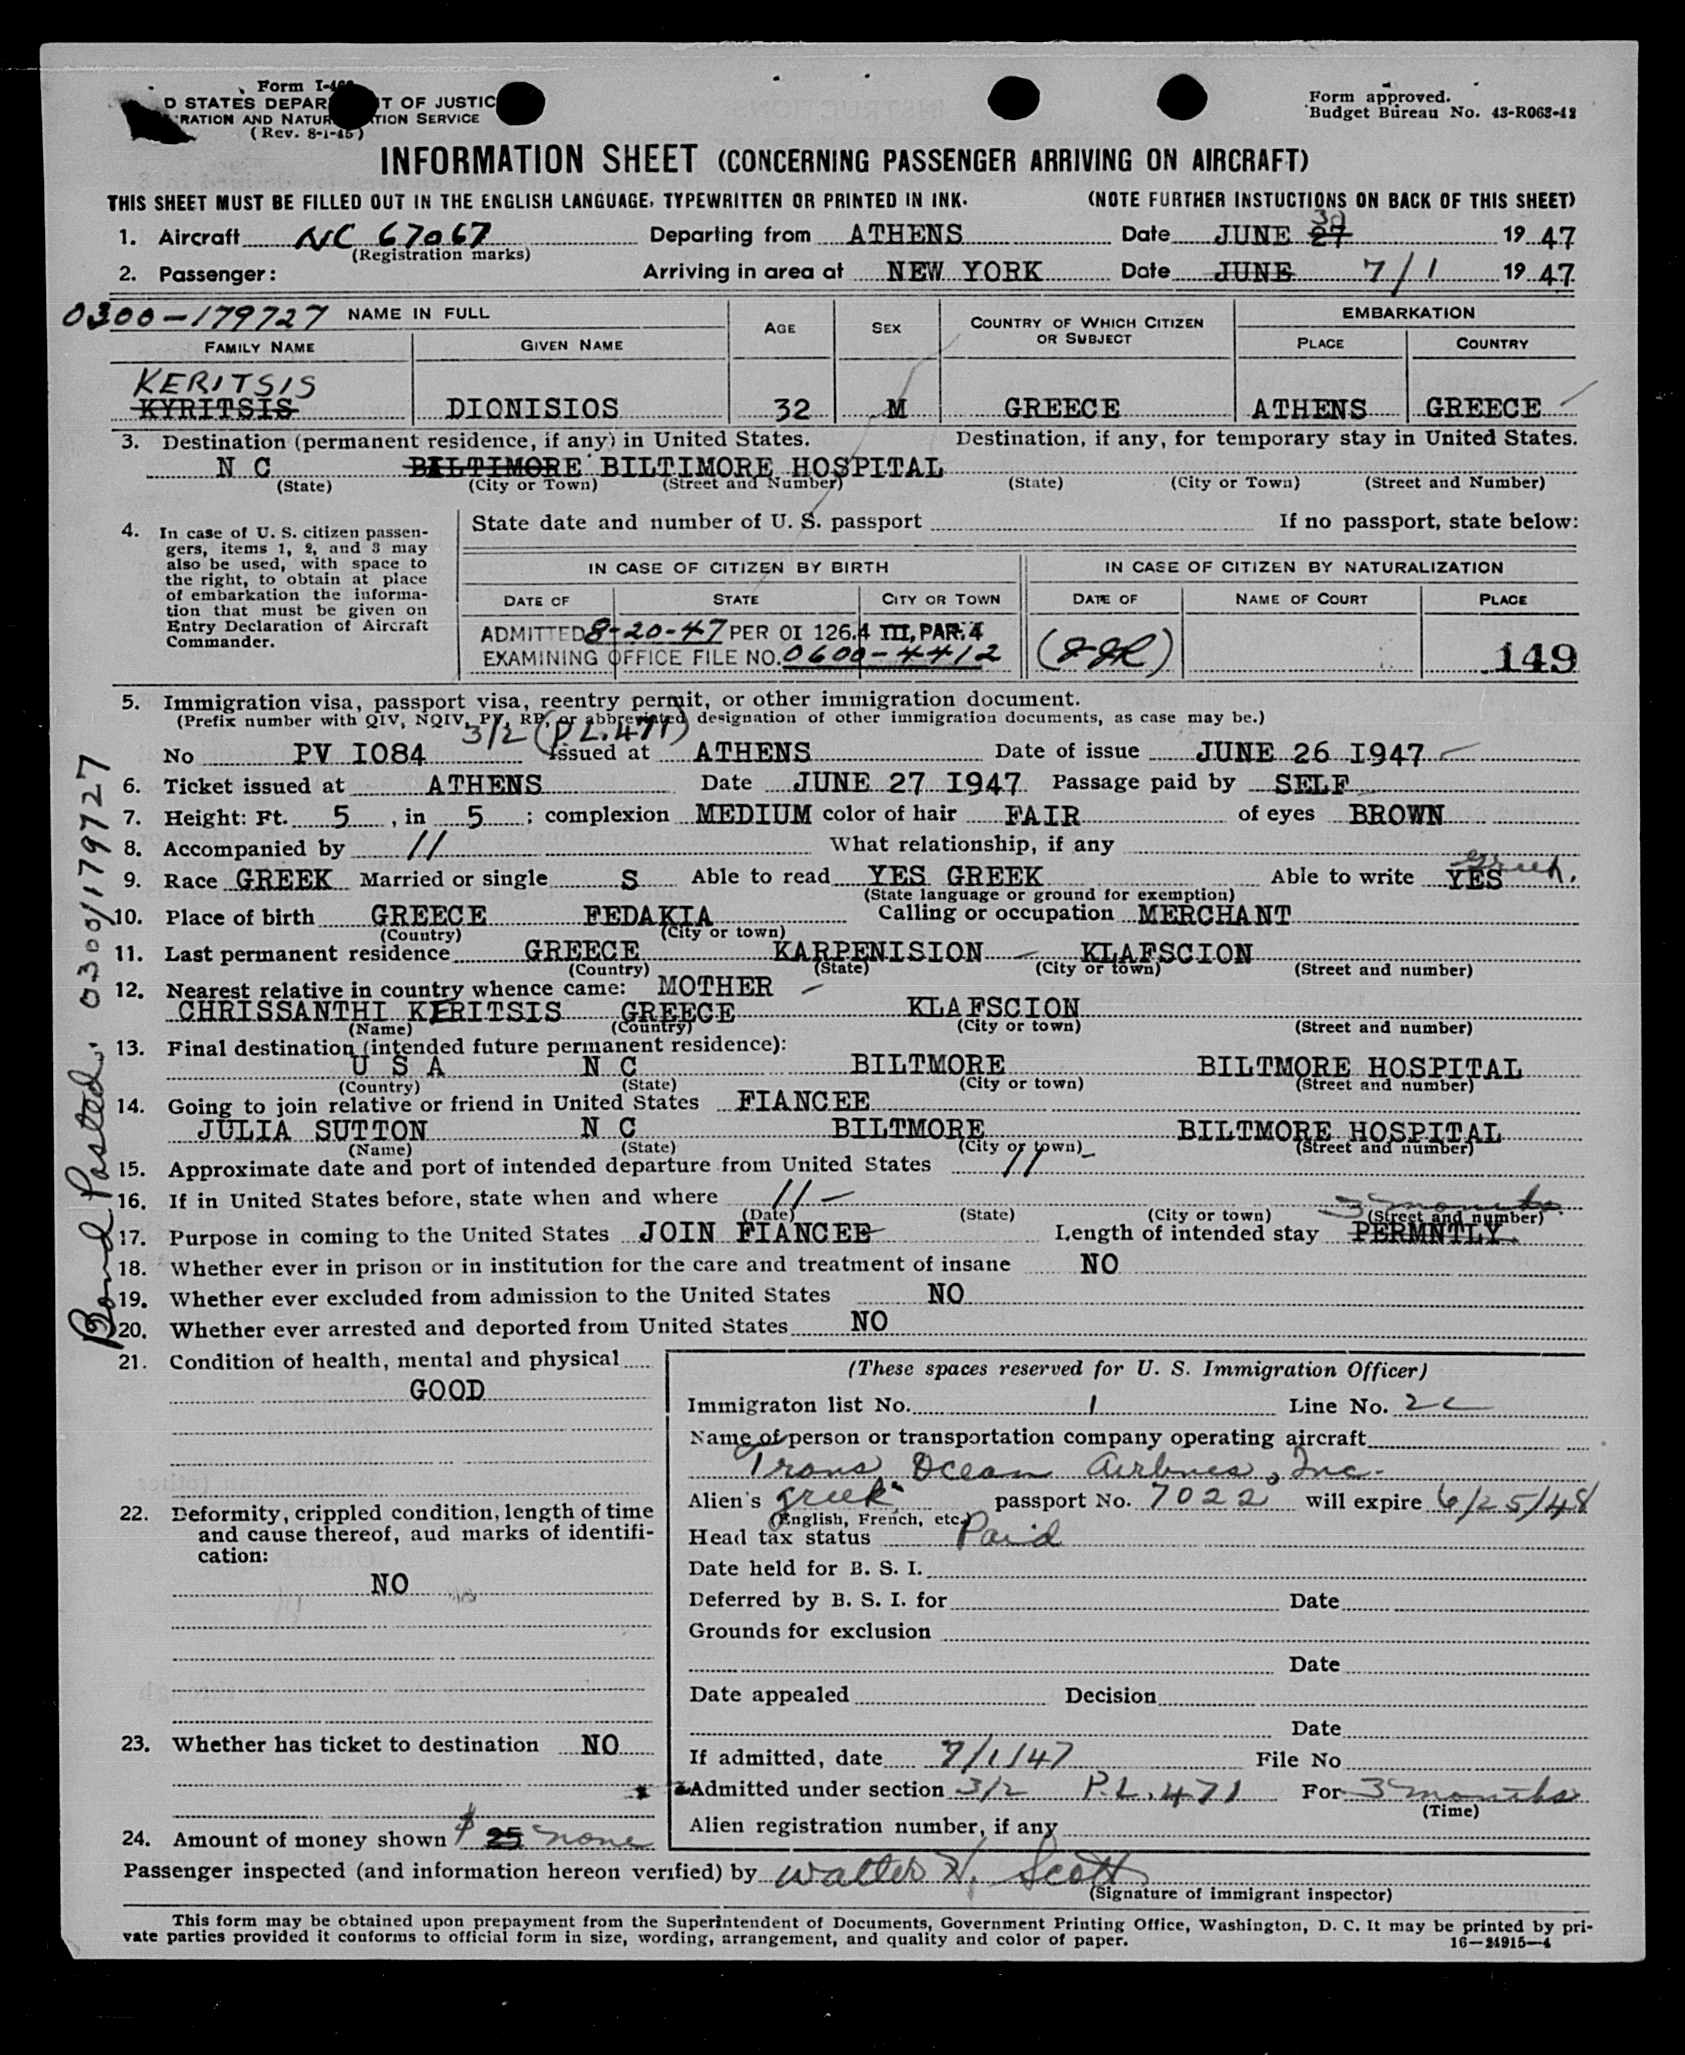 Form I-4
D STATES DEPAR T OF JUSTIC
RATION AND NATUR TION SERVICE
(Rev. 8-1-45)
Form approved.
Budget Bureau No. 43-R068-42
INFORMATION SHEET (CONCERNING PASSENGER ARRIVING ON AIRCRAFT)
THIS SHEET MUST BE FILLED OUT IN THE ENGLISH LANGUAGE, TYPEWRITTEN OR PRINTED IN INK. (NOTE FURTHER INSTUCTIONS ON BACK OF THIS SHEET)
30
1. Aircraft NC 67067 Departing from ATHENS Date JUNE 27 1947
(Registration marks)
2. Passenger: Arriving in area at NEW YORK Date JUNE 7/1 1947
0300-179727 NAME IN FULL AGE SEX COUNTRY OF WHICH CITIZEN OR SUBJECT EMBARKATION
FAMILY NAME GIVEN NAME PLACE COUNTRY
KERITSIS
KYRITSIS DIONISIOS 32 M GREECE ATHENS GREECE
3. Destination (permanent residence, if any) in United States. Destination, if any, for temporary stay in United States.
N C BILTIMORE BILTIMORE HOSPITAL
(State) (City or Town) (Street and Number) (State) (City or Town) (Street and Number)
4. In case of U. S. citizen passen-
gers, items 1, 2, and 3 may
also be used, with space to
the right, to obtain at place
of embarkation the informa-
tion that must be given on
Entry Declaration of Aircraft
Commander.
State date and number of U. S. passport If no passport, state below:
IN CASE OF CITIZEN BY BIRTH IN CASE OF CITIZEN BY NATURALIZATION
DATE OF STATE CITY OR TOWN DATE OF NAME OF COURT PLACE
ADMITTED 8-20-47 PER OI 126.4 III, PAR. 4
EXAMINING OFFICE FILE NO. 0600-4412 149
5. Immigration visa, passport visa, reentry permit, or other immigration document.
(Prefix number with QIV, NQIV, PV, RP, or abbreviated designation of other immigration documents, as case may be.)
3/2 (P.L. 471)
No PV I084 Issued at ATHENS Date of issue JUNE 26 I947
6. Ticket issued at ATHENS Date JUNE 27 I947 Passage paid by SELF
7. Height: Ft. 5, in 5; complexion MEDIUM color of hair FAIR of eyes BROWN
8. Accompanied by // What relationship, if any
Greek.
9. Race GREEK Married or single S Able to read YES GREEK Able to write YES
(State language or ground for exemption)
10. Place of birth GREECE FEDAKIA Calling or occupation MERCHANT
(Country) (City or town)
11. Last permanent residence GREECE KARPENISION KLAFSCION
(Country) (State) (City or town) (Street and number)
12. Nearest relative in country whence came: MOTHER
CHRISSANTHI KERITSIS GREECE KLAFSCION
(Name) (Country) (City or town) (Street and number)
13. Final destination (intended future permanent residence):
U S A N C BILTMORE BILTMORE HOSPITAL
(Country) (State) (City or town) (Street and number)
14. Going to join relative or friend in United States FIANCEE
JULIA SUTTON N C BILTMORE BILTMORE HOSPITAL
(Name) (State) (City or town) (Street and number)
15. Approximate date and port of intended departure from United States //
16. If in United States before, state when and where //
(Date) (State) (City or town) (Street and number)
3 months
17. Purpose in coming to the United States JOIN FIANCEE Length of intended stay PERMNTLY.
18. Whether ever in prison or in institution for the care and treatment of insane NO
19. Whether ever excluded from admission to the United States NO
20. Whether ever arrested and deported from United States NO
Bond Posted. 0300/179727
21. Condition of health, mental and physical
GOOD
22. Deformity, crippled condition, length of time
and cause thereof, aud marks of identifi-
cation:
NO
23. Whether has ticket to destination NO
24. Amount of money shown $ 25 none
(These spaces reserved for U. S. Immigration Officer)
Immigraton list No. 1 Line No. 22
Name of person or transportation company operating aircraft
Trans Ocean Airlines, Inc.
Alien's Greek passport No. 7022 will expire 6/25/48
(English, French, etc.)
Head tax status Paid
Date held for B. S. I.
Deferred by B. S. I. for Date
Grounds for exclusion
Date
Date appealed Decision
Date
If admitted, date 7/1/47 File No
Admitted under section 3/2 P.L. 471 For 3 months
(Time)
Alien registration number, if any
Passenger inspected (and information hereon verified) by Walter H. Scott
(Signature of immigrant inspector)
This form may be obtained upon prepayment from the Superintendent of Documents, Government Printing Office, Washington, D. C. It may be printed by pri-
vate parties provided it conforms to official form in size, wording, arrangement, and quality and color of paper. 16—24915—4